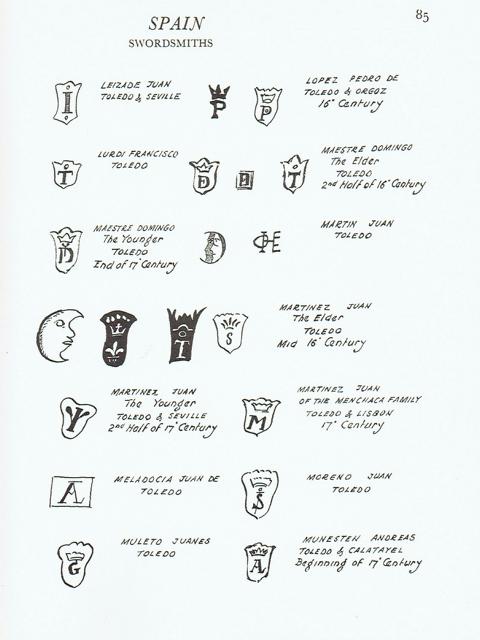 85
SPAIN
SWORDSMITHS
I
LEIZADE JUAN
TOLEDO & SEVILLE
P
P
LOPEZ PEDRO DE
TOLEDO & ORGOZ
16ᵉ Century
T
LURDI FRANCISCO
TOLEDO
D
T
MAESTRE DOMINGO
The Elder
TOLEDO
2nd Half of 16ᵉ Century
MAESTRE DOMINGO
The Younger
TOLEDO
End of 17ᵉ Century
MARTIN JUAN
TOLEDO
T
S
MARTINEZ JUAN
The Elder
TOLEDO
Mid 16ᵉ Century
Y
MARTINEZ JUAN
The Younger
TOLEDO & SEVILLE
2nd Half of 17ᵉ Century
M
MARTINEZ JUAN
OF THE MENCHACA FAMILY
TOLEDO & LISBON
17ᵉ Century
A
MELADOCIA JUAN DE
TOLEDO
S
MORENO JUAN
TOLEDO
G
MULETO JUANES
TOLEDO
A
MUNESTEN ANDREAS
TOLEDO & CALATAYEL
Beginning of 17ᵉ Century